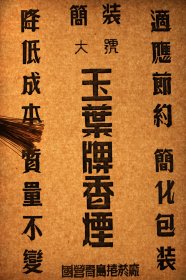 簡装
大號
玉葉牌香煙
適應節約 簡化包装
降低成本 質量不變
國營青島捲菸廠